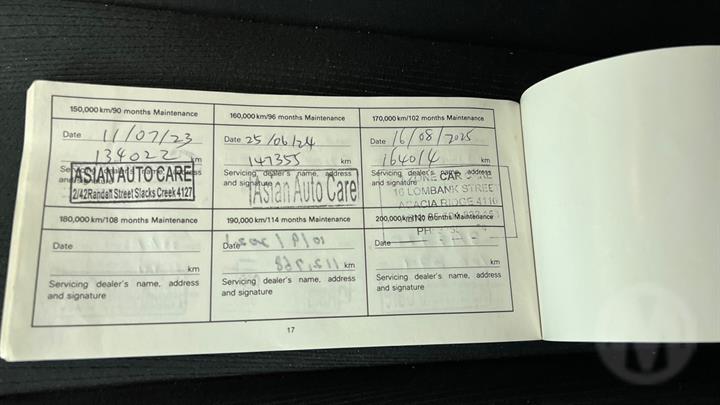 150,000 km/90 months Maintenance
Date 11/07/23
134022 km
Servicing dealer's name, address
and signature
ASIAN AUTO CARE
2/42 Randall Street Slacks Creek 4127
160,000 km/96 months Maintenance
Date 25/06/24
147355 km
Servicing dealer's name, address
and signature
Asian Auto Care
170,000 km/102 months Maintenance
Date 16/08/2025
164014 km
Servicing dealer's name, address
and signature
CAR
16 LOMBANK STREET
ACACIA RIDGE 4110
180,000 km/108 months Maintenance
Date
km
Servicing dealer's name, address
and signature
190,000 km/114 months Maintenance
Date
km
Servicing dealer's name, address
and signature
200,000 km/120 months Maintenance
Date
km
Servicing dealer's name, address
and signature
17